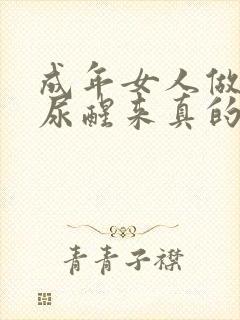 成年女人做
尿醒来真的
青青子襟